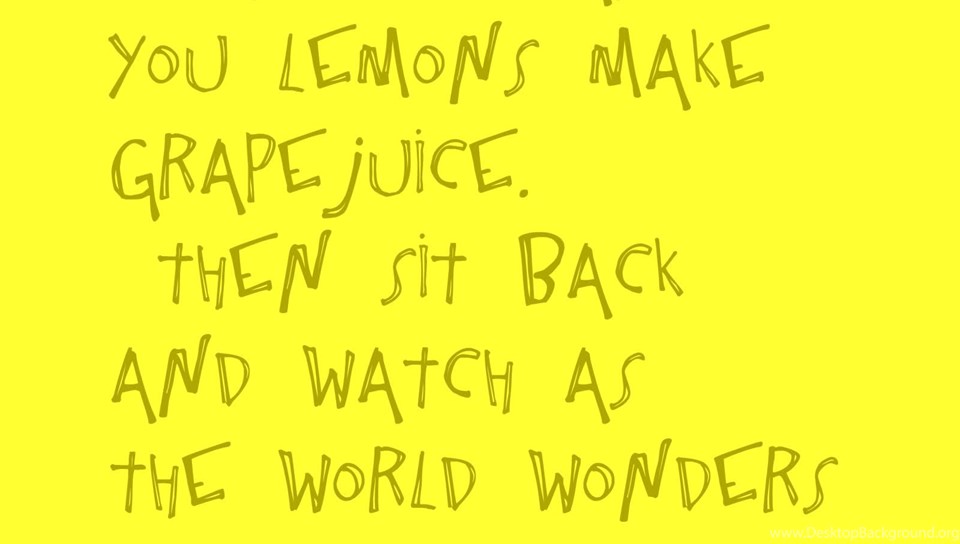 YOU LEMONS MAKE
GRAPE jUiCE.
tHEN Sit BACK
AND WAtCH AS
tHE WORLD WONDERS
www.DesktopBackground.org